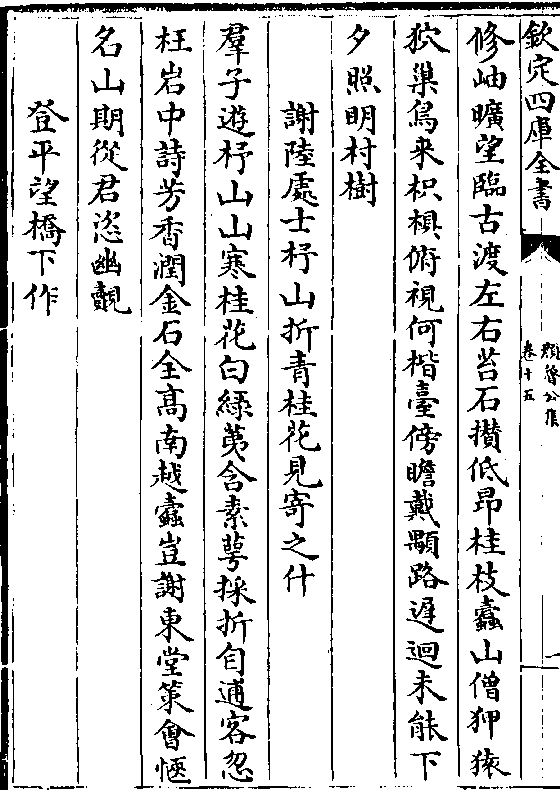 欽定四庫全書
顔魯公集
卷十五
修岫曠望臨古渡左右苔石攅低昂桂枝蠧山僧狎猿
狖巢鳥来枳椇俯視何楷臺傍瞻戴顒路遲迴未能下
夕照明村樹
謝陸處士杼山折青桂花見寄之什
羣子遊杼山山寒桂花白緑荑含素萼採折自逋客忽
枉岩中詩芳香潤金石全髙南越蠧豈謝東堂策會愜
名山期從君恣幽覿
登平望橋下作